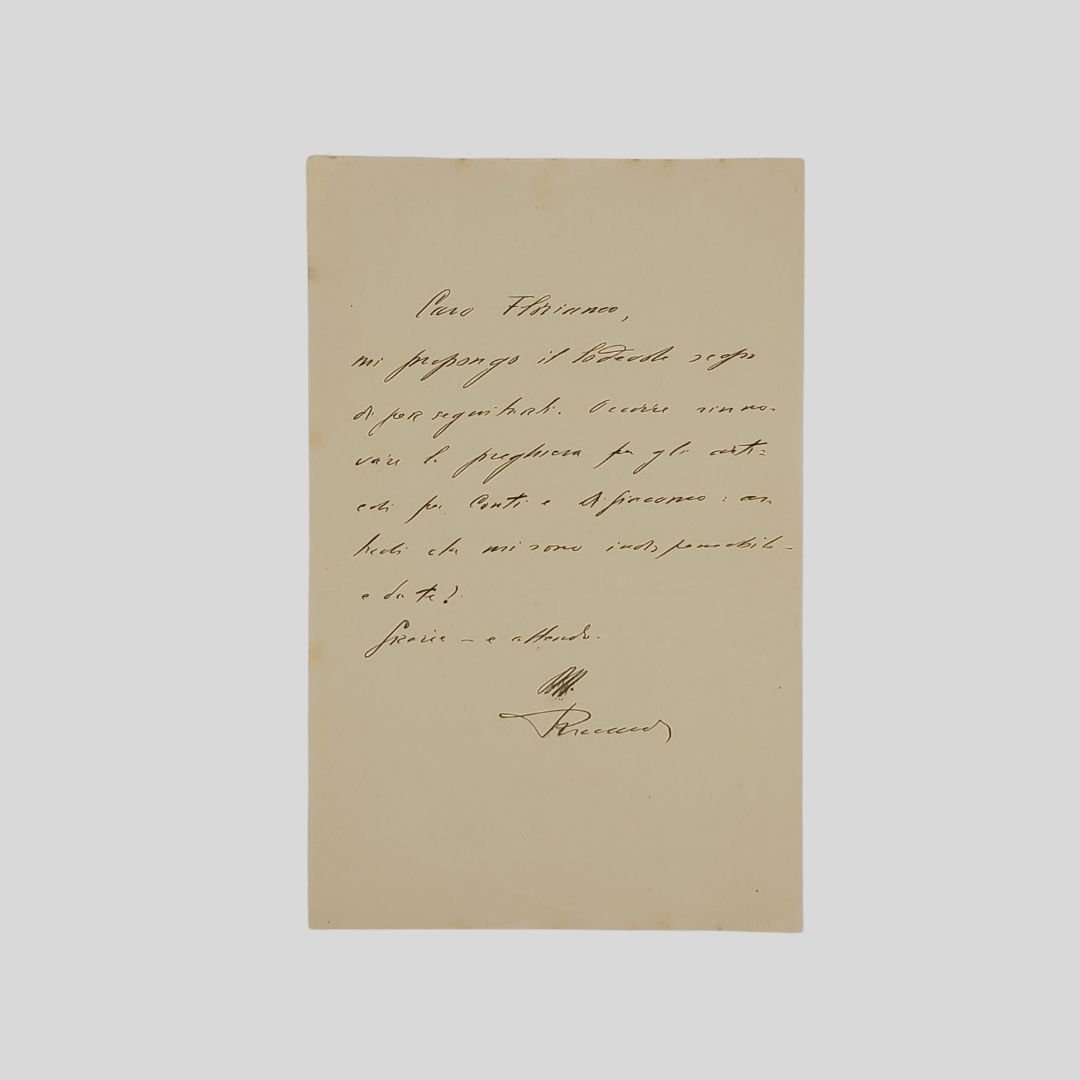 Caro Floriano,
mi propongo il lodevole scopo
di perseguitarti. Occorre rinno-
vare la preghiera per gli arti-
coli per Conti e Di Giacomo: ar
ticoli che mi sono indispensabili
e da te?
Grazie - e attendo.